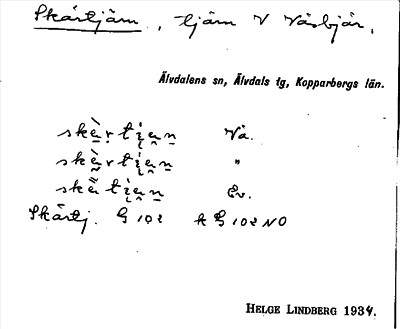 Skärtjärn, tjärn V Väsbjär,
Älvdalens sn, Älvdals tg, Kopparbergs län.
skɛ̀r̥ti̯a̯n̥ Vå.
skɛ̀r̥ti̯a̯n̥ "
skɛ̃̀ti̯a̯n̥ Ev.
Skärtj. G 102 k G 102 NO
HELGE LINDBERG 1934.